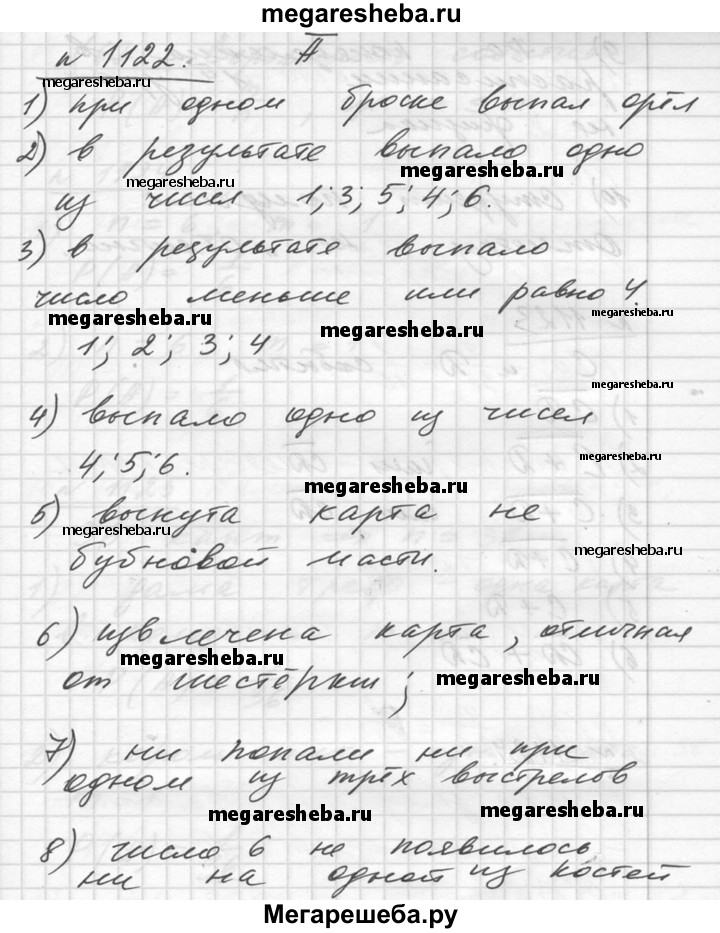 megaresheba.ru
n 1122. A̅
megaresheba.ru
1) при одном броске выпал орёл
2) в результате выпало одно
megaresheba.ru
megaresheba.ru
из чисел 1; 3; 5; 4; 6.
3) в результате выпало
число меньше или равно 4.
megaresheba.ru
megaresheba.ru
megaresheba.ru
1; 2; 3; 4
megaresheba.ru
4) выпало одно из чисел
4; 5; 6.
megaresheba.ru
megaresheba.ru
5) вынута карта не
megaresheba.ru
бубновой масти.
megaresheba.ru
6) извлечена карта, отличная
megaresheba.ru
от шестёрки;
megaresheba.ru
7) ни попали ни при
одном из трёх выстрелов
megaresheba.ru
megaresheba.ru
8) число 6 не появилось
ни на одной из костей
Мегарешеба.ру